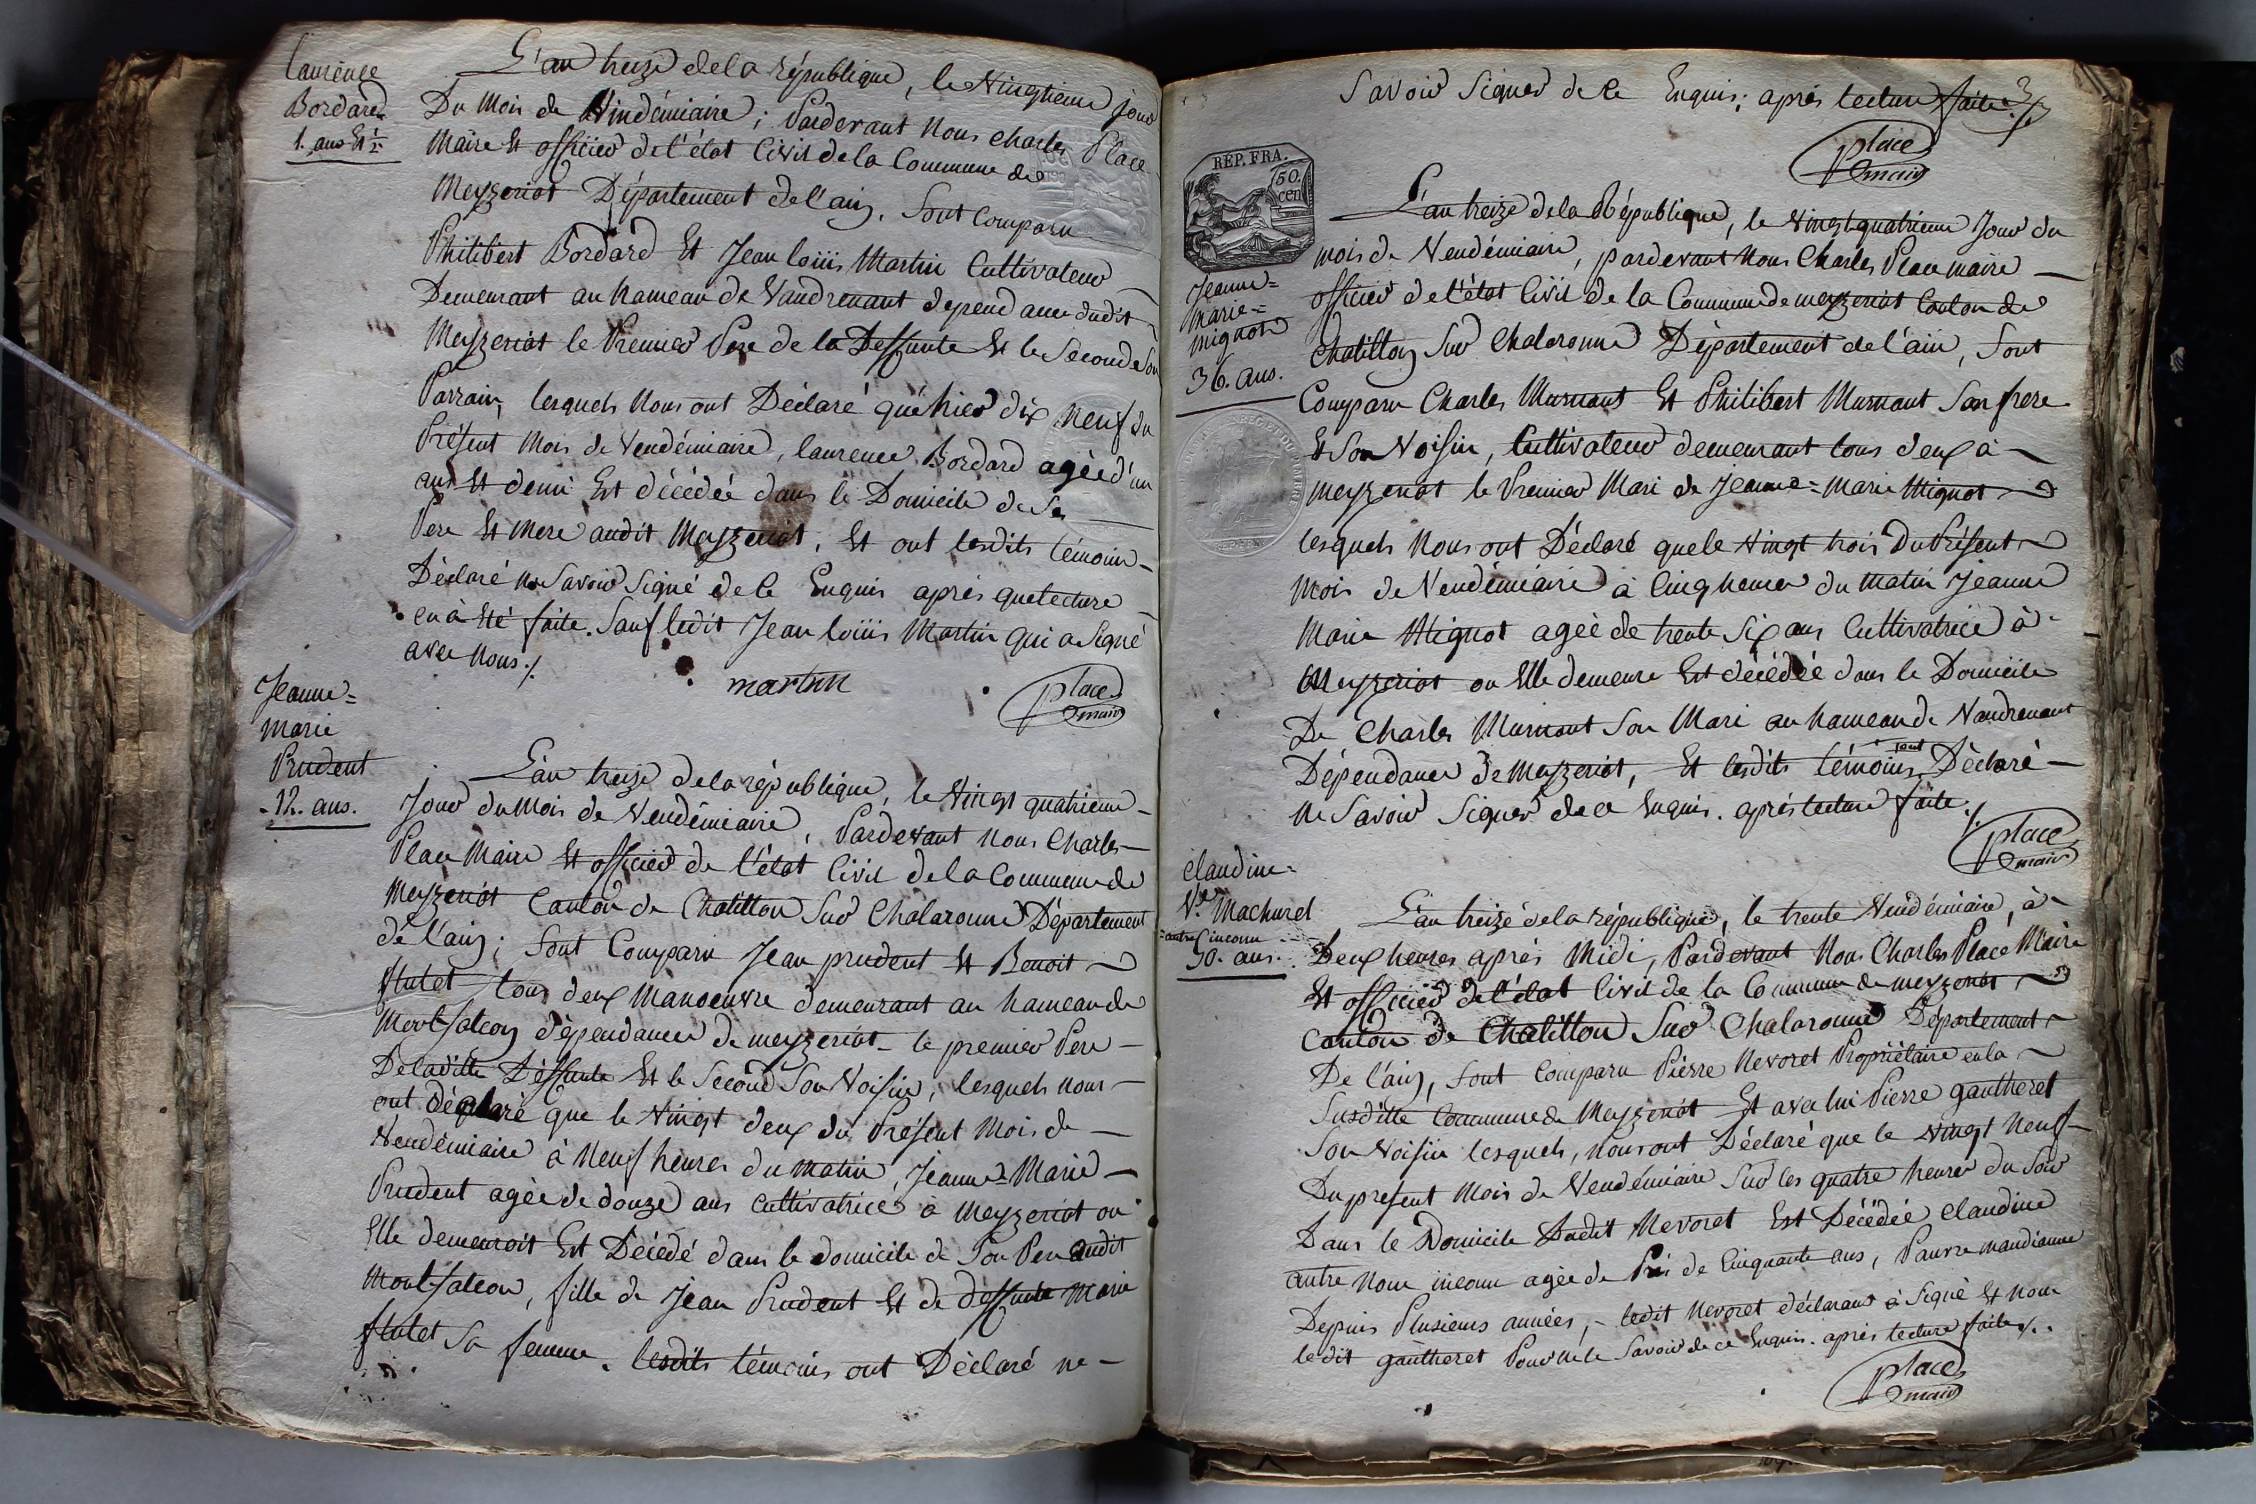 laurence
Bordard
1. ans Et ½
L'an treize de la république, le Vingtieme jour
Du Mois de Vindémiaire ; Pardevant Nous Charles Place
Maire Et officier de l'état Civil de la Commune de
Meyzeriat Département de l'ain, Sont Comparu
Philibert Bordard Et Jean loüis Martin Cultivateur
Demeurant au hameau de Vaudrenant dependance dudit
Meyzeriat le Premier Pere de la Deffunte Et le Second Son
Parrain, lesquels Nous ont Déclaré qué hier dix Neuf du
Présent Mois de Vendémiaire, laurence Bordard agée d'un
ans Et demi Est décédée dans le Domicile de Se
Pere Et Mere audit Meyzeriat, Et ont lesdits témoin
Déclaré ne Savoir Signé de Ce Enquis après que lecture
en à Eté faite. Sauf ledit Jean loüis Martin qui a Signé
avec nous ./.
martin
Place
maire
Jeanne=
marie
Prudent
12. ans.
L'an treize de la république, le Vingt quatrieme
Jour du Mois de Vendémiaire, Pardevant Nous Charles
Place Maire Et officier de l'état Civil de la Commune de
Meyzeriat Canton de Chatillon Sur Chalaronne Département
de l'ain ; Sont Comparu Jean prudent Et Benoit
flutet tous deux Manoeuvre demeurant au hameau de
Montfalcon dépendance de meyzeriat le premier Pere
De laditte Déffunte Et le Second Son Voisin, lesquels nous
ont déclaré que le Vingt deux du Présent Mois de
Vendémiaire à Neuf heures du matin, Jeanne=Marie
Prudent agée de douze ans Cultivatrice a Meyzeriat ou
Elle demeuroit Est Décédé dans le domicile de Son Pere audit
Montfalcon, fille de Jean Prudent Et de deffunte Marie
flutet Sa femme. lesdits témoins ont Déclaré ne
Savoir Signer de Ce Enquis ; après lecture faite ./.
Place
maire
RÉP. FRA.
50.
cen
Jeanne=
marie=
mignot
36. ans.
L'an treize de la République, le Vingt quatrieme Jour du
mois de Vendémiaire, pardevant Nous Charles Place maire
officier de l'état Civil de la Commune de meyzeriat Canton de
Chatillon Sur Chalaronne Département de l'ain, Sont
Comparu Charles Murnant Et Philibert Murnant Son frere
Et Son Voisin, Cultivateur demeurant tous deux à
meyzeriat le Premier Mari de Jeanne=Marie Mignot
lesquels Nous ont Déclaré que le Vingt trois Du Présent
Mois de Vendémiaire à Cinq heures du Matin Jeanne
Marie Mignot agée de trente Six ans Cultivatrice à
Meyzeriat ou Elle demeure Est décédée dans le Domicile
De Charles Murnant Son Mari au hameau de Vaudrenant
Dépendance de Meyzeriat, Et lesdits témoins ont Déclaré
Ne Savoir Signer de ce Enquis. après lecture faite ./.
Place
maire
Claudine=
Ve Machuret
=autre inconu
50. ans.
L'an treize de la république, le trente Vendémiaire, à
Deux heures après Midi, Pardevant Nous Charles Place Maire
Et officier de l'état Civil de la Commune de meyzeriat
Canton de Chatillon Sur Chalaronne Département
De l'ain, Sont Comparu Pierre Nevoret Propriétaire en la
Susditte Commune de Meyzeriat Et avec lui Pierre gautheret
Son Voisin lesquels, nous ont Déclaré que le Vingt Neuf
Du present Mois de Vendémiaire Sur les quatre heures du Soir
Dans le Domicile Dudit Nevoret Est Décédée Claudine
autre Nom inconu agée de Près de Cinquante ans, Pauvre mandianne
Depuis Plusieurs années, ledit Nevoret déclarant à Signé Et Non
ledit gautheret Pour ne le Savoir de ce Enquis. après lecture faite ./.
Place
maire